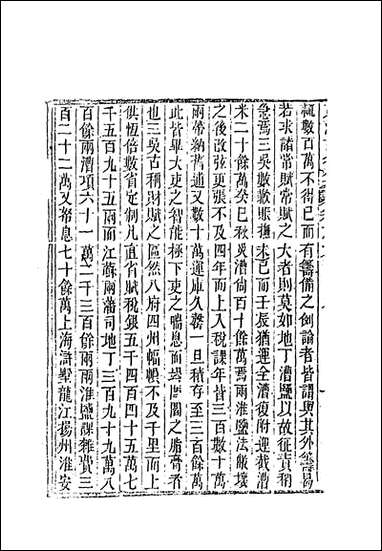 輒數百萬不得已而有籌備之例論者皆謂與其外籌曷
若求諸常賦常賦之大者則莫如地丁漕鹽以故征責稍
急焉三吳數數賑糶未已而壬辰猶運全漕復附運截漕
米二十餘萬癸巳秋災漕尚百十餘萬焉兩淮鹽法敝壞
之後改弦更張不及四年而上入覈課年皆三百數十萬
兩帶納舊逋又數十萬運庫久罄一旦積存至三百餘萬
此皆畢大吏之智能極下吏之喘息而竭閭閻之脂膏者
也三吳古稱財賦之區然八府四州幅幀不及千里而上
供恆倍數省定制凡直省賦稅銀五千四百四十五萬七
千五百九十五兩而江蘇兩藩司地丁三百九十九萬八
百餘兩漕項六十一萬二千三百餘兩兩淮鹽課雜費三
百二十二萬又帑息七十餘萬上海滸墅龍江揚州淮安